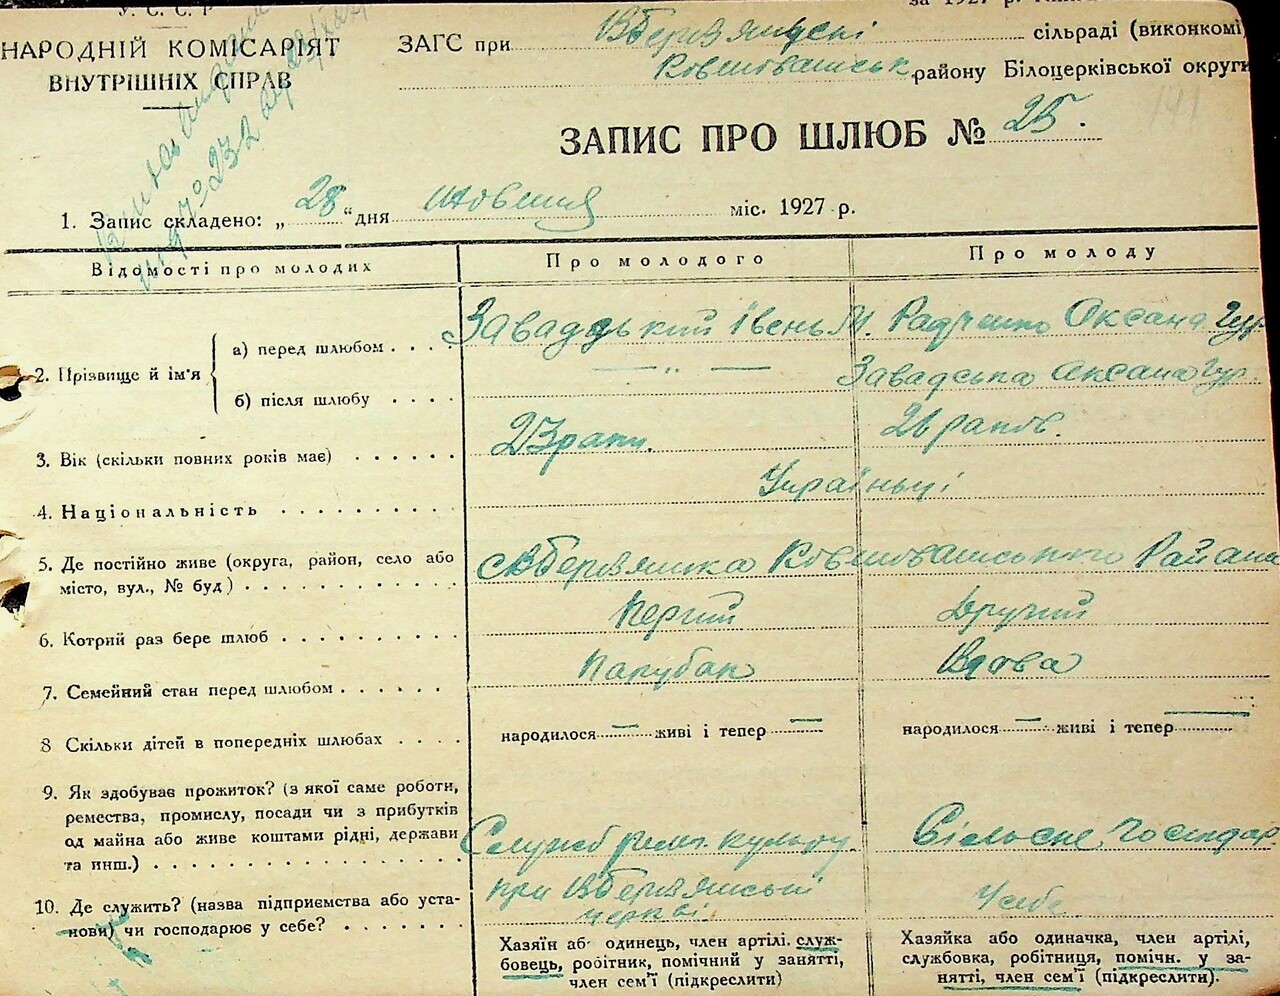 У. С. С. Р
за 1927 р.
НАРОДНІЙ КОМІСАРІЯТ
ВНУТРІШНІХ СПРАВ
ЗАГС при сільраді (виконкомі)
району Білоцерківської округи
№ 232
141
ЗАПИС ПРО ШЛЮБ № 25.
1. Запис складено: „28“ дня жовтня міс. 1927 р.
Відомості про молодих
Про молодого
Про молоду
2. Прізвище й ім'я
а) перед шлюбом . . . .
Завадський Івень М. Радченко Оксана Гур
б) після шлюбу . . . .
— „ —
Завадська Оксана Гур.
3. Вік (скільки повних років має) . . . . . .
23 роки.
26 років.
4. Національність . . . . . . . . . .
Українці
5. Де постійно живе (округа, район, село або
місто, вул., № буд) . . . . . . . . . . . .
6. Котрий раз бере шлюб . . . . . . . . . .
Перший
Другий
7. Семейний стан перед шлюбом . . . . . .
Парубак
Вдова
8 Скільки дітей в попередніх шлюбах . . . .
народилося — живі і тепер —
народилося — живі і тепер —
9. Як здобуває прожиток? (з якої саме роботи,
ремества, промислу, посади чи з прибутків
од майна або живе коштами рідні, держави
та инш.) . . . . . . . . . . . . . . . . .
Служб реліг. культу.
Сільське Господар.
10. Де служить? (назва підприємства або уста-
нови) чи господарює у себе? . . . . . . .
при
церкві.
У себе
Хазяїн або одинець, член артілі. служ-
бовець, робітник, помічний у занятті,
член сем'ї (підкреслити)
Хазяйка або одиначка, член артілі,
службовка, робітниця, помічн. у за-
нятті, член сем'ї (підкреслити).